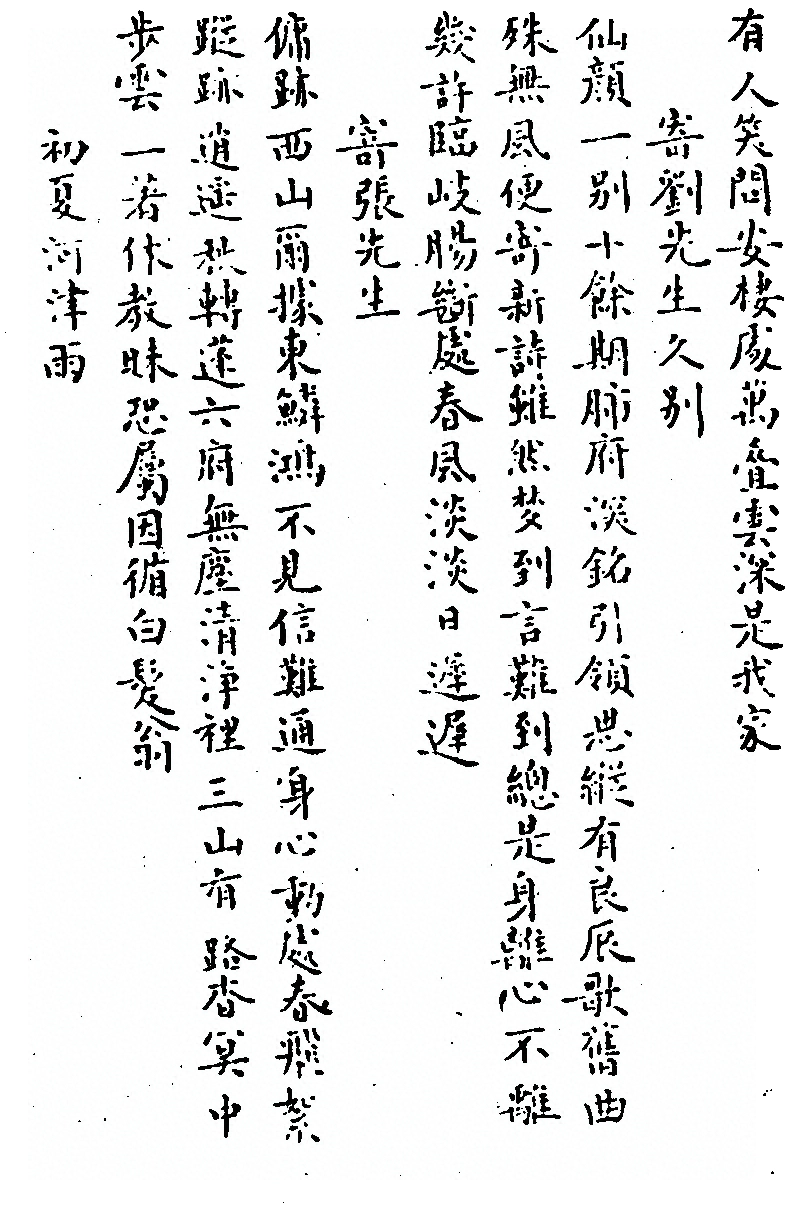 有人笑問安棲處萬疊雲深是我家
寄劉先生久别
仙顔一别十餘期肺府深銘引領思縱有良辰歌舊曲
殊無風便寄新詩雖然梦到言難到總是身離心不離
幾許臨岐腸斷處春風淡淡日遲遲
寄張先生
傭跡西山爾據東鱗鴻不見信難通身心動處春飛絮
蹤跡逍遥秋轉蓬六府無塵清淨裡三山有路杳冥中
步雲一著休教昧恐屬因循白髮翁
初夏河津雨